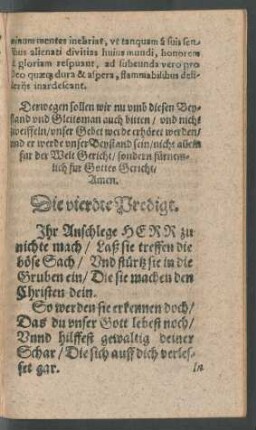 minum mentes inebriat, vt tanquam à suis sen-
sibus alienati divitias huius mundi, honorem
& gloriam respuant, ad subeunda vero pro
deo quæq; dura & aspera, flammabilibus desi-
derijs inardescant.
Derwegen sollen wir nu vmb diesen Bey-
stand vnd Gleitsman auch bitten / vnd nicht
zweiffeln / vnser Gebet werde erhöret werden /
vnd er werde vnser Beystand sein / nicht allein
fur der Welt Gericht / sondern fürnem-
lich fur Gottes Gericht /
Amen.
Die vierdte Predigt.
Ihr Anschlege HERR zu
nichte mach / Laß sie treffen die
böse Sach / Vnd stürtz sie in die
Gruben ein / Die sie machen den
Christen dein.
So werden sie erkennen doch /
Das du vnser Gott lebest noch /
Vnnd hilffest gewaltig deiner
Schar / Die sich auff dich verles-
set gar.
In